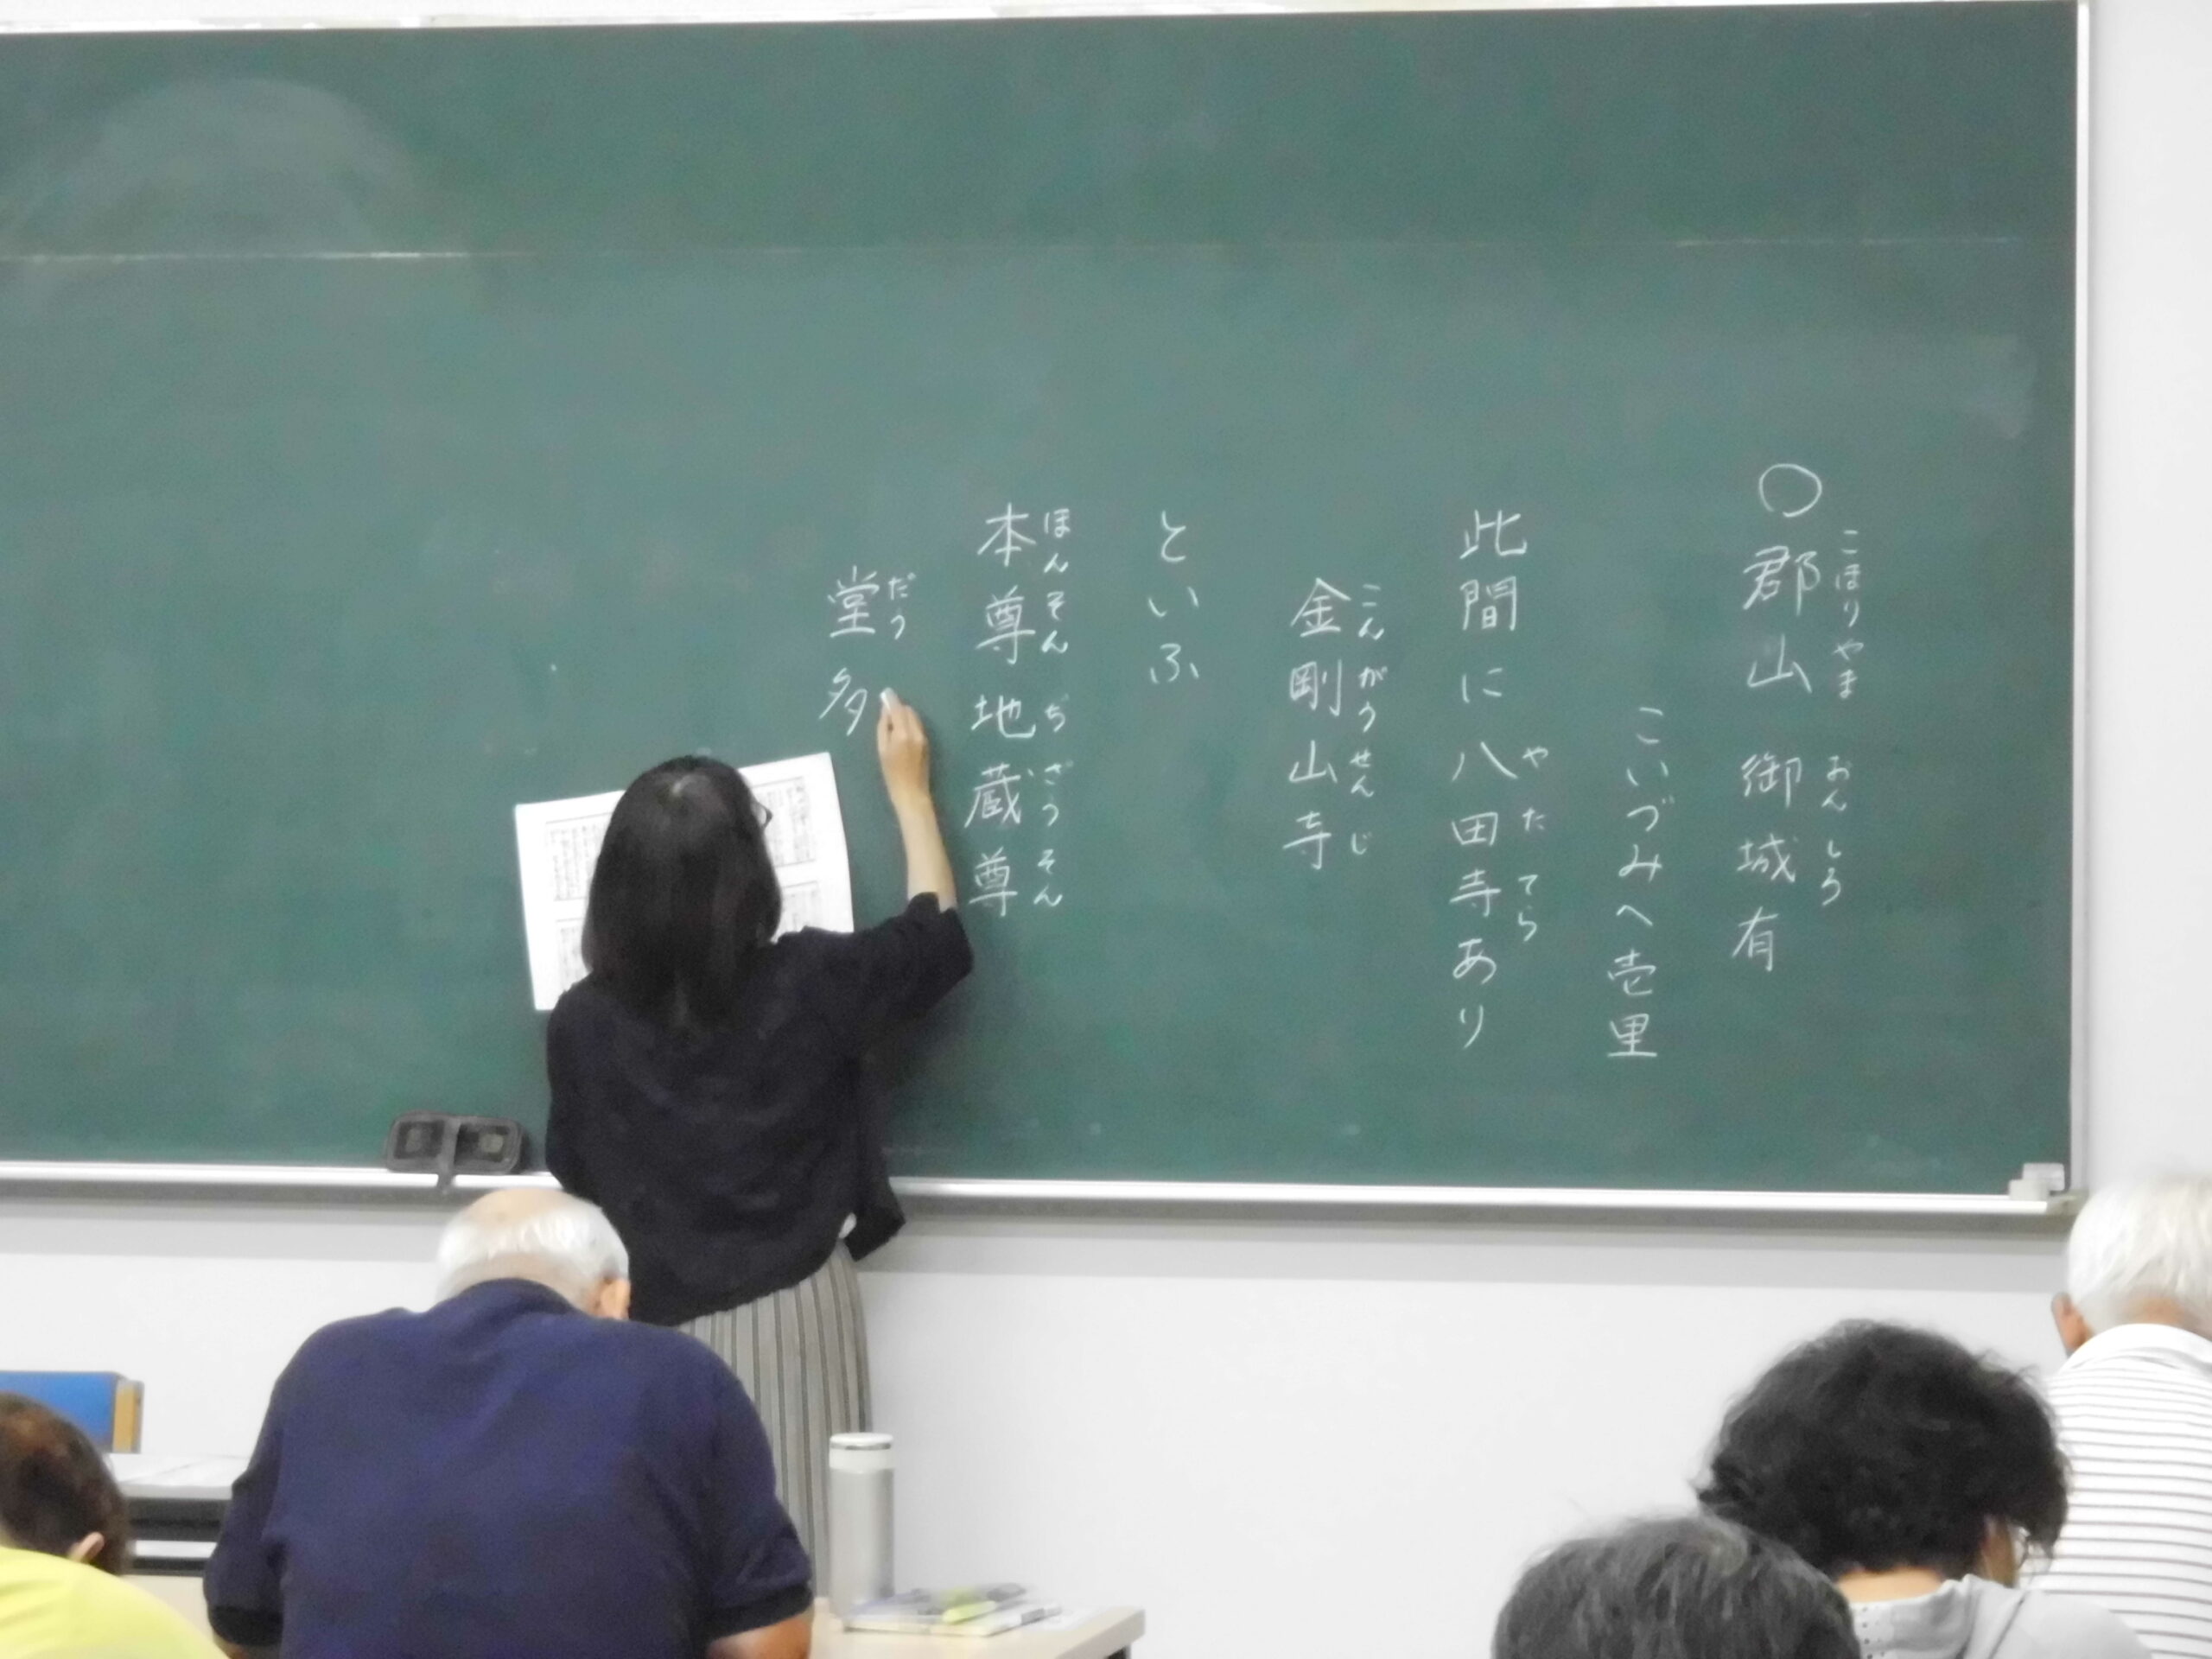 〇郡山 御城有
こほりやま おんしろ
こいづみへ壱里
此間に八田寺あり
やたてら
金剛山寺
こんがうせんじ
といふ
本尊地蔵尊
ほんそんぢざうそん
堂多
だう